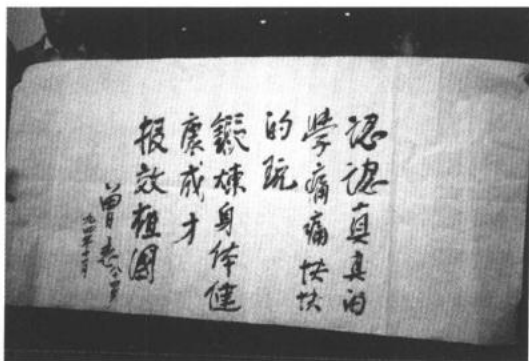 認認真真的
學痛痛快快
的玩
鍛煉身体健
康成才
报效祖國
曾志
九四年